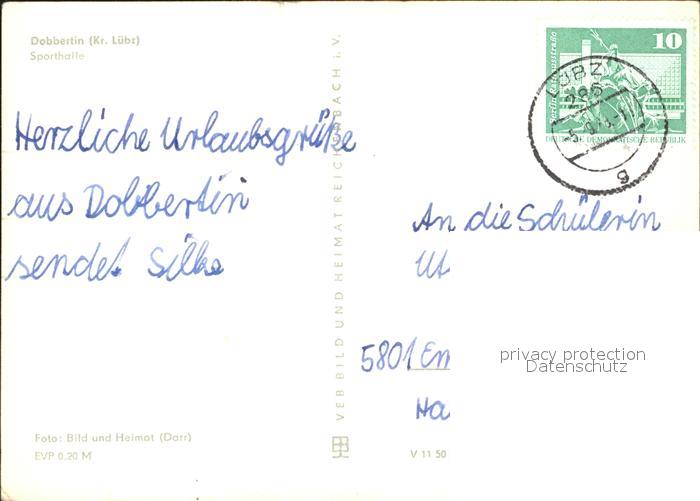 Dobbertin (Kr. Lübz)
Sporthalle
Herzliche Urlaubsgrüße
aus Dobbertin
sendet Silke
Foto: Bild und Heimat (Darr)
EVP 0,20 M
VEB BILD UND HEIMAT REICHENBACH i. V.
V 11 50
10
DEUTSCHE DEMOKRATISCHE REPUBLIK
LÜBZ
286
g
An die Schülerin
Ut
5801 Em
Ha
privacy protection
Datenschutz